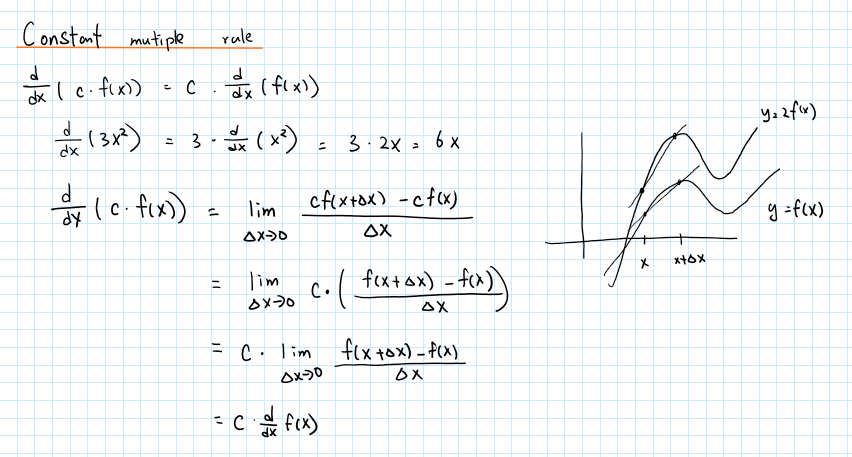 Constant mutiple rule
d/dx ( c · f(x)) = c · d/dx (f(x))
d/dx (3x²) = 3 · d/dx (x²) = 3 · 2x = 6x
d/dx ( c · f(x)) = lim Δx→0 cf(x+Δx) - cf(x) / Δx
= lim Δx→0 c · ( f(x+Δx) - f(x) / Δx )
= c · lim Δx→0 f(x+Δx) - f(x) / Δx
= c · d/dx f(x)
y = 2f(x)
y = f(x)
x x+Δx